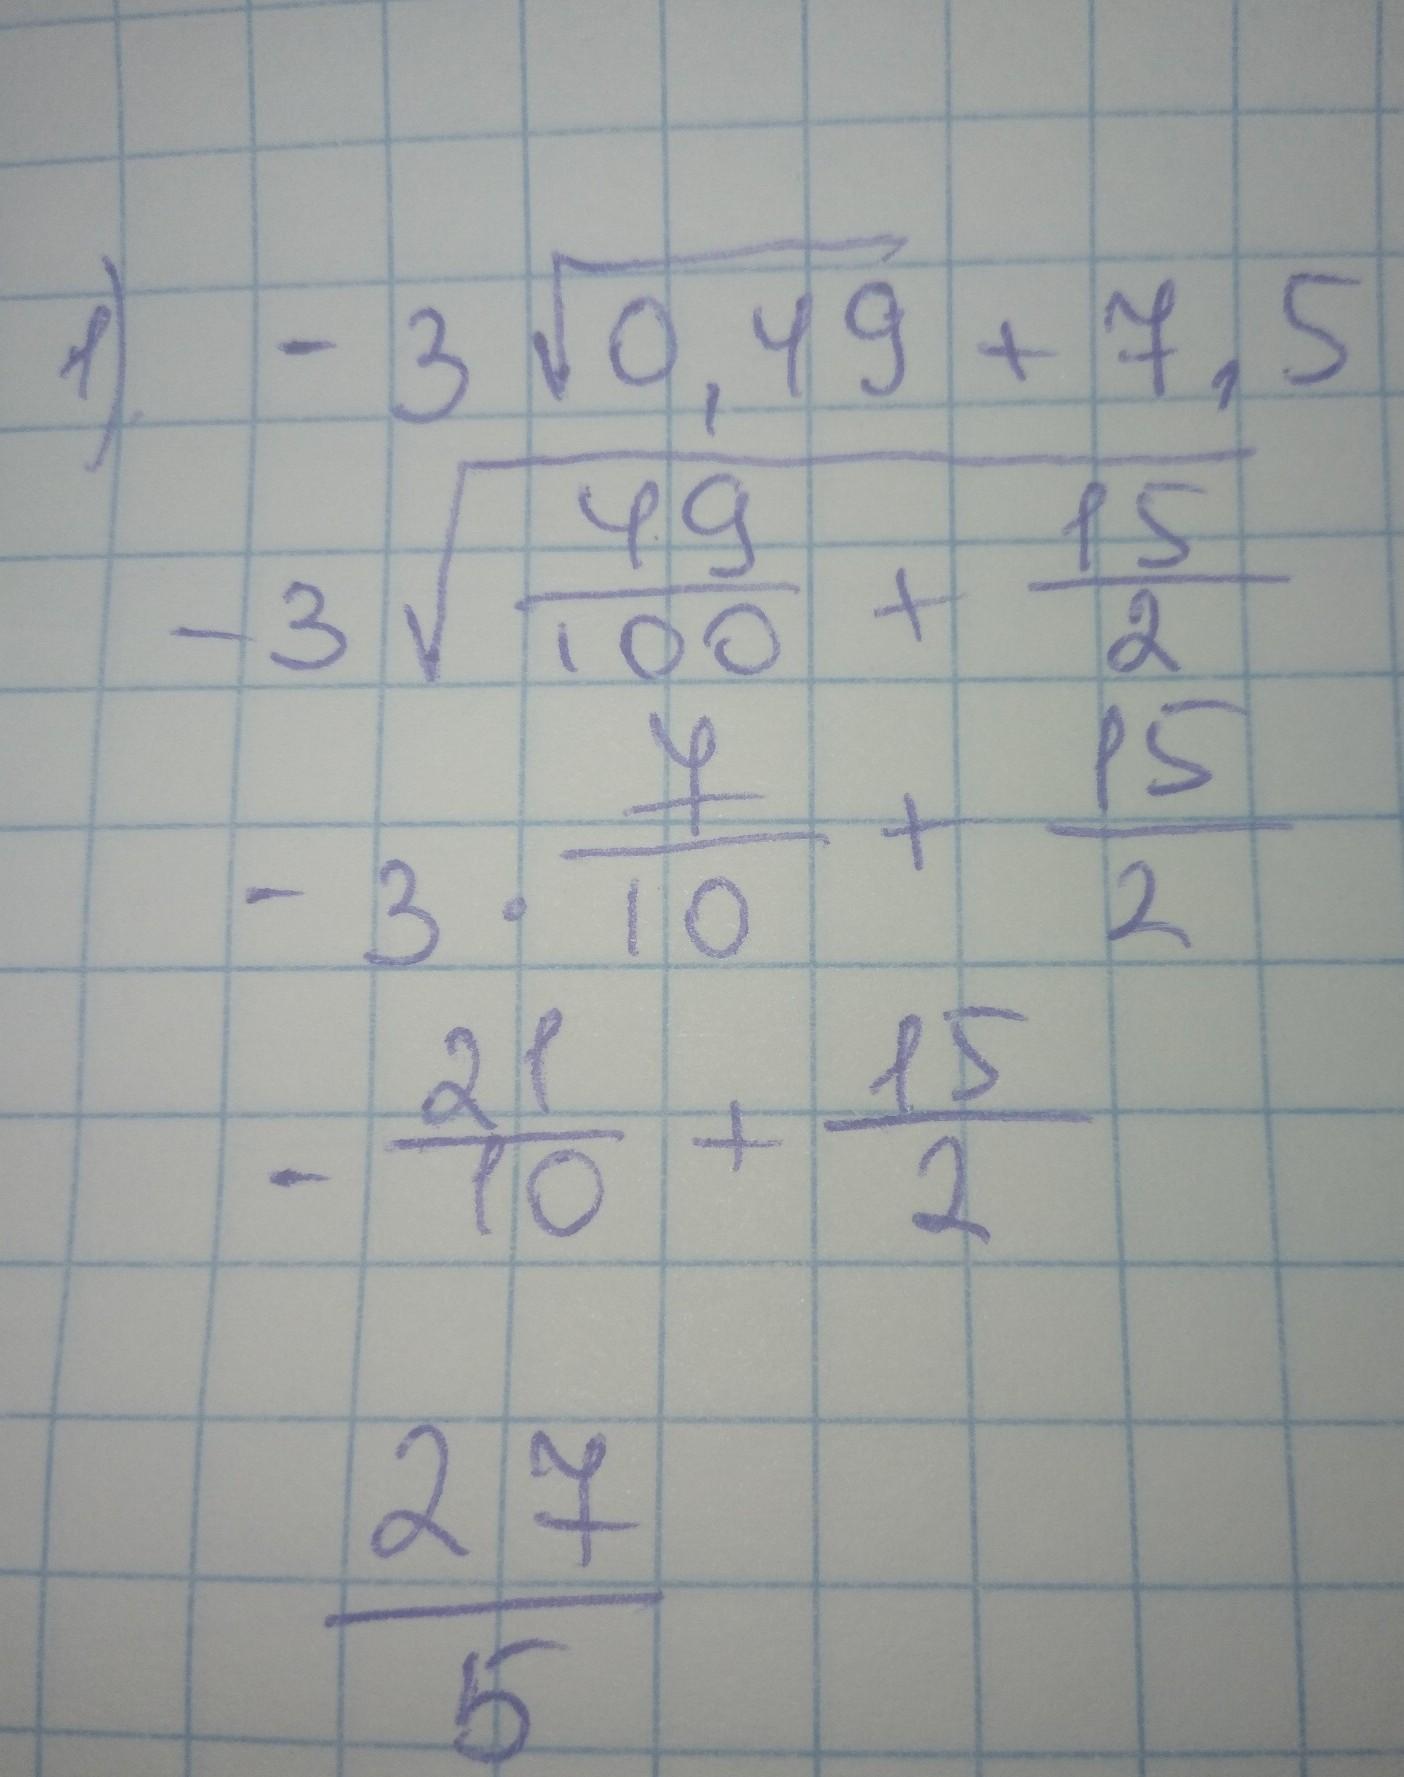 1) - 3 √0,49 + 7,5
- 3 √(49/100 + 15/2)
- 3 · 7/10 + 15/2
- 21/10 + 15/2
27/5